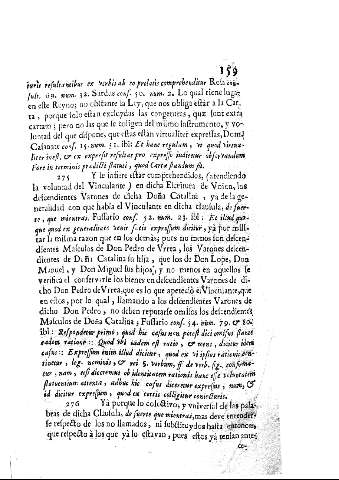 159
iuris resultantibus ex verbis ab eo prolatis comprehenditur Rosa
sult. 69. num. 32. Surdus cons. 50. num. 2. Lo qual tiene lugar
en este Reyno; no obstante la Ley, que nos obliga estar à la Car-
ta, porque solo estan excluydas las congeturas, quæ sunt extra
cartam; pero no las que se coligen del mismo instrumento, y vo-
luntad del que dispone, que estas estan virtualiter expressas, Dom.
Casanate cons. 15. num. 31. ibi: Et hanc regulam, quod virtua-
liter inest, & ex expressis resultat pro expresso iudicetur observandum
Fore in terminis prædicti statuti, quod Cartæ standum sit.
275 Y le infiere estar comprehendidos, (atendiendo
la voluntad del Vinculante) en dicha Escritura de Union, los
descendientes Varones de dicha Doña Catalina, ya de la ge-
neralidad con que habla el Vinculante en dicha clausula, de suer-
te, que mientras. Fussario cons. 52. num. 23. ibi: Et illud quo-
que quod ex generalitate venit satis expressum dicitur, yà por mili-
tar la misma razon que en los demàs; pues no menos son descen-
dientes Masculos de Don Pedro de Virta, los Varones descen-
dientes de Doña Catalina su hija, que los de Don Lope, Don
Manuel, y Don Miguel sus hijos, y no menos en aquellos se
verifica el conservarse los bienes en descendientes Varones de di-
cho Don Pedro de Virta, que es lo que apeteciò el Vinculante, que
en estos, por lo qual, llamando à los descendientes Varones de
dicho Don Pedro, no deben reputarse omissos los descendientes
Masculos de Doña Catalina, Fussario cons. 54. num. 79. & 80.
ibi: Respondetur primò, quod hic casus non potest dici omissus stante
eadem ratione: Quod ubi eadem est ratio, & mens, dicitur idem
casus: Expressum enim illud dicitur, quod ex vi ipsius rationis con-
tur, nam, etsi diceremus ob identitatem rationis hunc esse voluntatem
statuentium attenta, adhuc hic casus diceretur expressus, nam, &
id dicitur expressum, quod ex certis colligitur coniecturis.
276 Yà porque lo colectivo, y vniversal de las pala-
bras de dicha Clausula, de suerte que mientras, mas deve entender-
se respecto de los no llamados, ni substituydos hasta entonces,
que respecto à los que yà lo estavan, pues estos yà tenian ante-